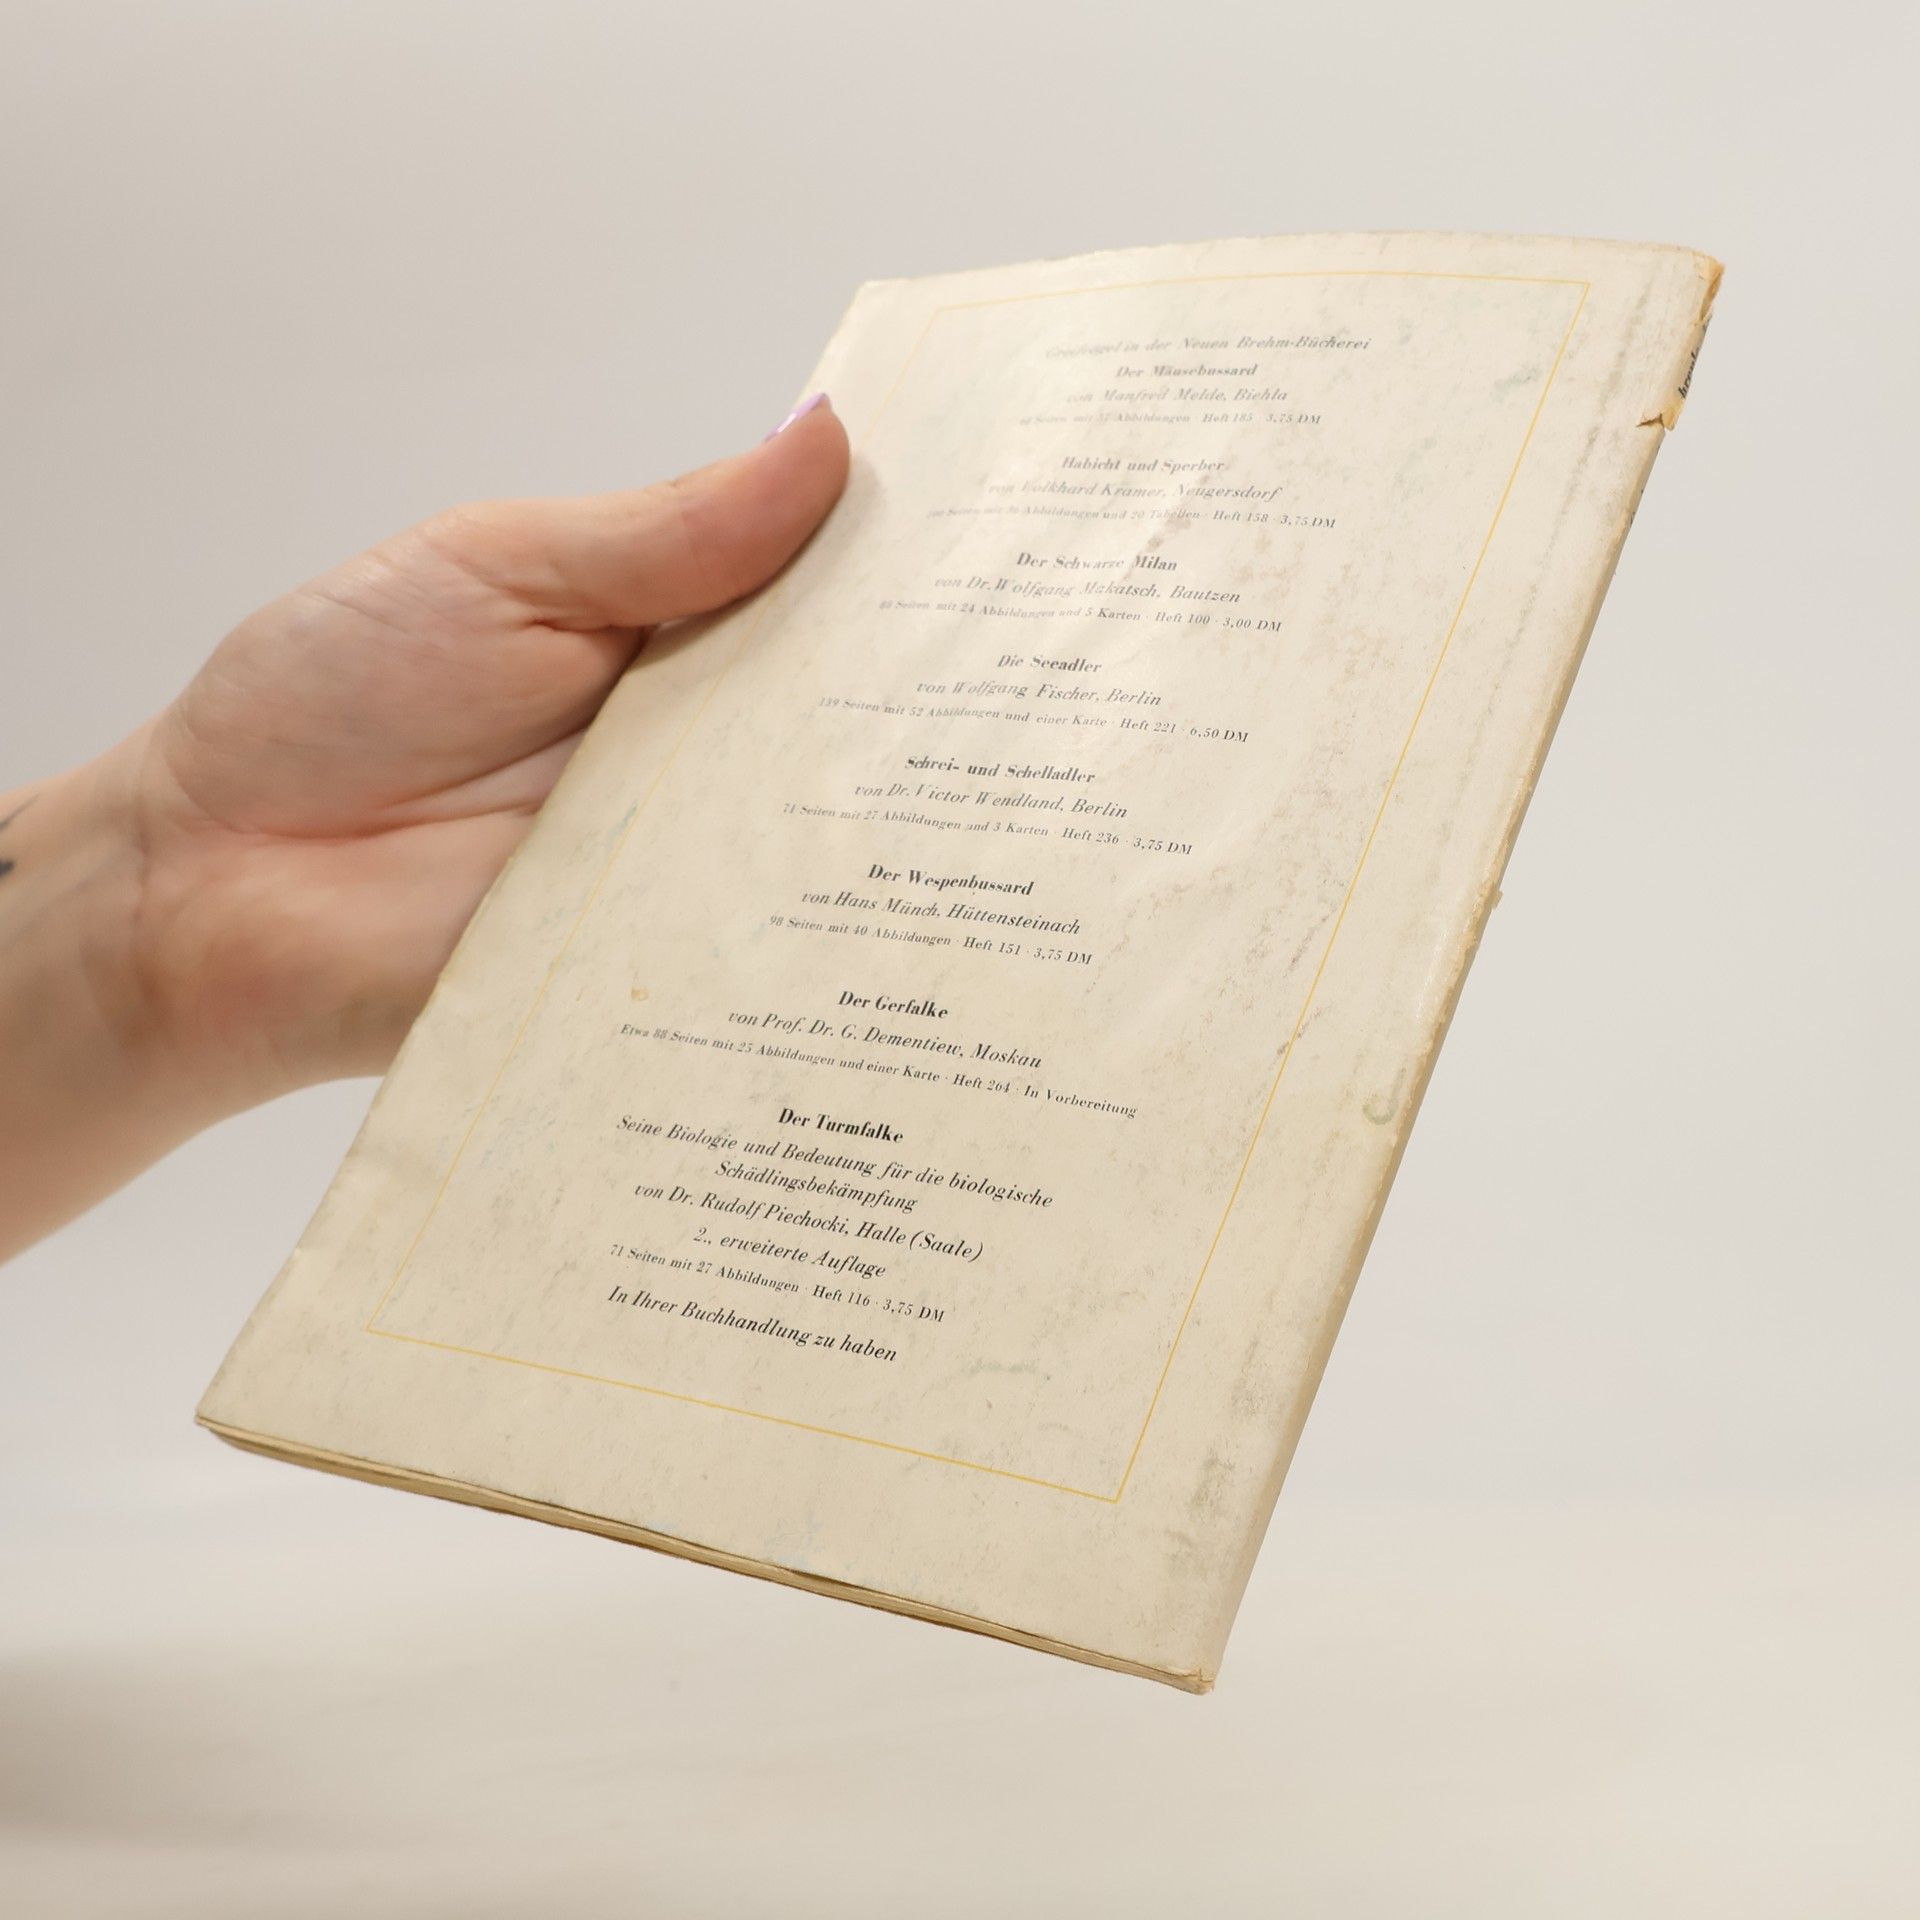 Greifvögel in der Neuen Brehm-Bücherei
Der Mäusebussard
von Manfred Melde, Biehla
Seiten mit 57 Abbildungen · Heft 185 · 3,75 DM
Habicht und Sperber
von Volkhard Kramer, Neugersdorf
Seiten mit 36 Abbildungen und 20 Tabellen · Heft 158 · 3,75 DM
Der Schwarze Milan
von Dr. Wolfgang Makatsch, Bautzen
88 Seiten mit 24 Abbildungen und 5 Karten · Heft 100 · 3,00 DM
Die Seeadler
von Wolfgang Fischer, Berlin
139 Seiten mit 52 Abbildungen und einer Karte · Heft 221 · 6,50 DM
Schrei- und Schelladler
von Dr. Victor Wendland, Berlin
71 Seiten mit 27 Abbildungen und 3 Karten · Heft 236 · 3,75 DM
Der Wespenbussard
von Hans Münch, Hüttensteinach
98 Seiten mit 40 Abbildungen · Heft 151 · 3,75 DM
Der Gerfalke
von Prof. Dr. G. Dementiew, Moskau
Etwa 88 Seiten mit 25 Abbildungen und einer Karte · Heft 264 · In Vorbereitung
Der Turmfalke
Seine Biologie und Bedeutung für die biologische
Schädlingsbekämpfung
von Dr. Rudolf Piechocki, Halle (Saale)
2., erweiterte Auflage
71 Seiten mit 27 Abbildungen · Heft 116 · 3,75 DM
In Ihrer Buchhandlung zu haben